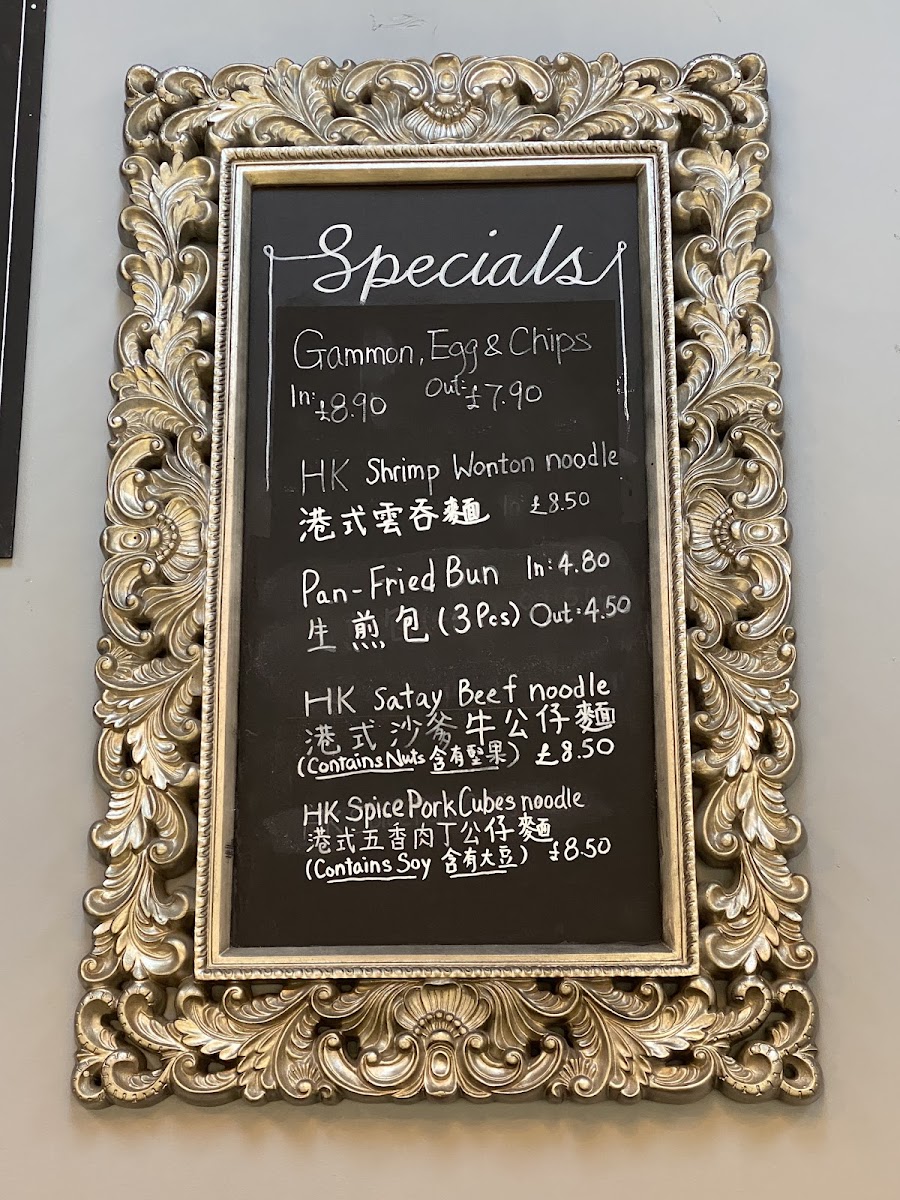 Specials
Gammon, Egg & Chips
In: £8.90 Out: £7.90
HK Shrimp Wonton noodle
港式雲吞麵 £8.50
Pan-Fried Bun In: 4.80
生煎包 (3Pcs) Out: 4.50
HK Satay Beef noodle
港式沙爹牛公仔麵
(Contains Nuts 含有堅果) £8.50
HK Spice Pork Cubes noodle
港式五香肉丁公仔麵
(Contains Soy 含有大豆) £8.50